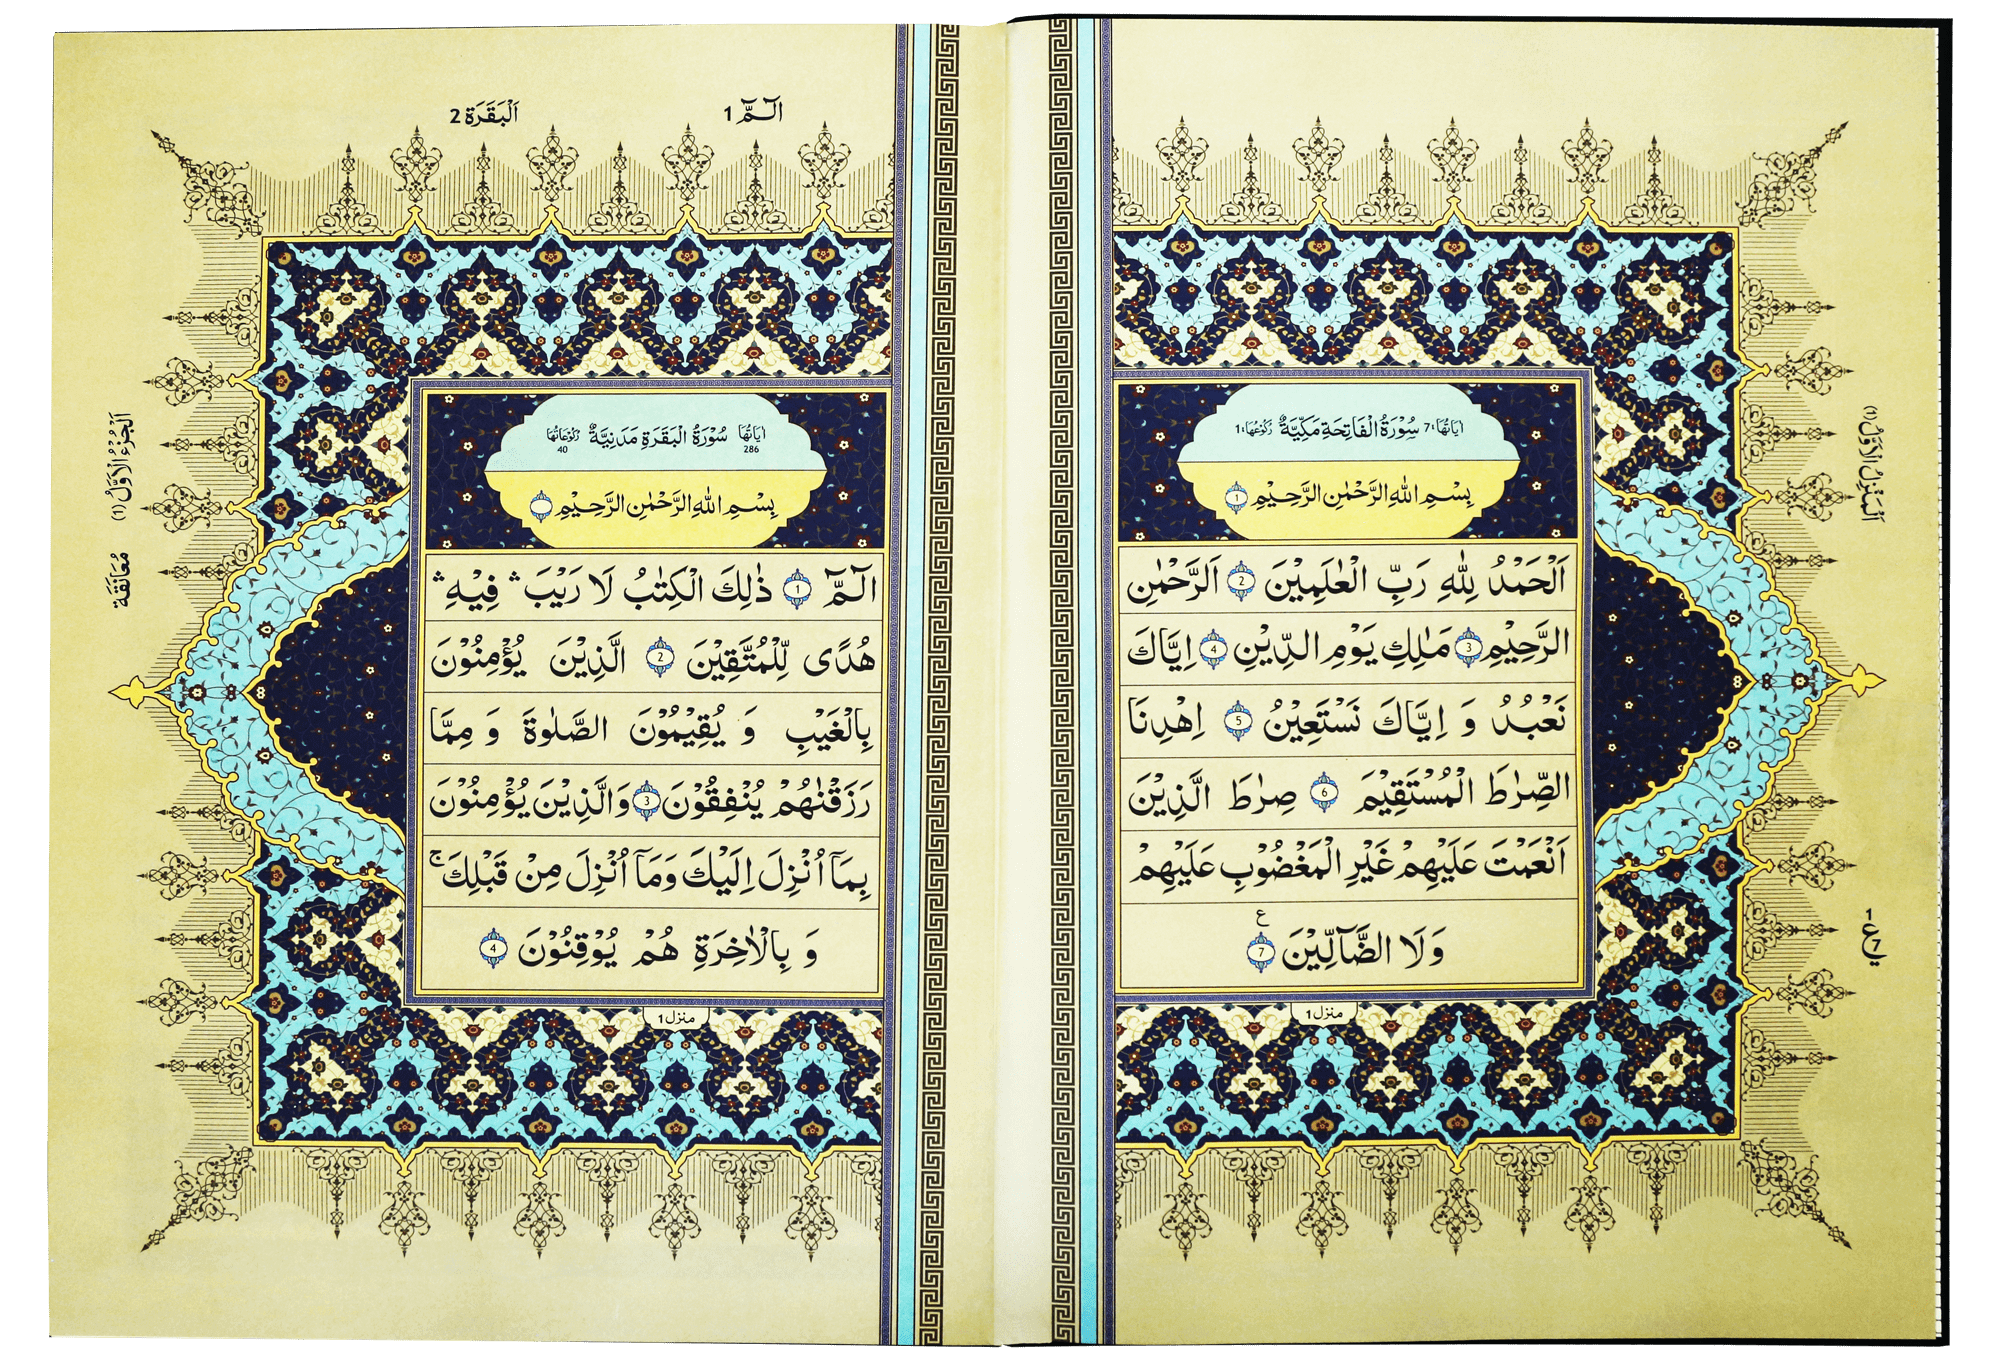 اٰيَاتُهَا:7 سُوْرَةُ الْفَاتِحَةِ مَكِّيَّةٌ رُكُوْعُهَا:1
بِسْمِ اللّٰهِ الرَّحْمٰنِ الرَّحِيْمِ 1
اَلْحَمْدُ لِلّٰهِ رَبِّ الْعٰلَمِيْنَ 2 اَلرَّحْمٰنِ
الرَّحِيْمِ 3 مٰلِكِ يَوْمِ الدِّيْنِ 4 اِيَّاكَ
نَعْبُدُ وَ اِيَّاكَ نَسْتَعِيْنُ 5 اِهْدِنَا
الصِّرٰطَ الْمُسْتَقِيْمَ 6 صِرٰطَ الَّذِيْنَ
اَنْعَمْتَ عَلَيْهِمْ غَيْرِ الْمَغْضُوْبِ عَلَيْهِمْ
ع
وَلَا الضَّآلِّيْنَ 7
منزل 1
اَلْمَنْزِلُ الْاَوَّلُ (1)
1
ع 7
الٓـمّٓ 1
اَلْبَقَرَة 2
اٰيَاتُهَا 286 سُوْرَةُ الْبَقَرَةِ مَدَنِيَّةٌ رُكُوْعَاتُهَا 40
بِسْمِ اللّٰهِ الرَّحْمٰنِ الرَّحِيْمِ
الٓـمّٓ 1 ذٰلِكَ الْكِتٰبُ لَا رَيْبَ ۛ فِيْهِ ۛ
هُدًى لِّلْمُتَّقِيْنَ 2 الَّذِيْنَ يُؤْمِنُوْنَ
بِالْغَيْبِ وَ يُقِيْمُوْنَ الصَّلٰوةَ وَ مِمَّا
رَزَقْنٰهُمْ يُنْفِقُوْنَ 3 وَالَّذِيْنَ يُؤْمِنُوْنَ
بِمَآ اُنْزِلَ اِلَيْكَ وَمَآ اُنْزِلَ مِنْ قَبْلِكَ ۚ
وَ بِالْاٰخِرَةِ هُمْ يُوْقِنُوْنَ 4
منزل 1
اَلْجُزْءُ الْاَوَّلُ (1)
مُعَانَقَة